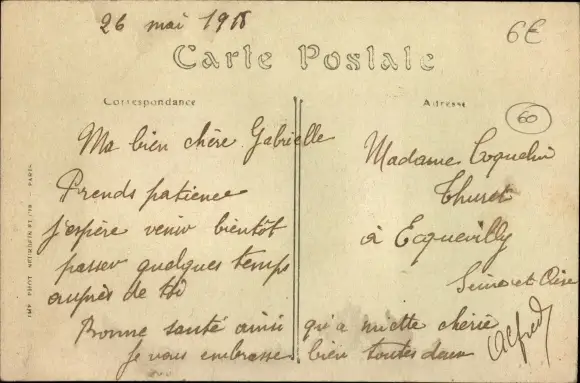 26 mai 1918
6€
Carte Postale
Correspondance
Adresse
60
Ma bien chère Gabrielle
Prends patience
j'espère venir bientôt
passer quelques temps
auprès de toi
Bonne santé ainsi qu'a miette chérie
je vous embrasse bien toutes deux
Alfred
Madame Coquelin
Thuret
à Ecquevilly
Seine et Oise
IMP. PHOT. NEURDEIN ET Cie - PARIS